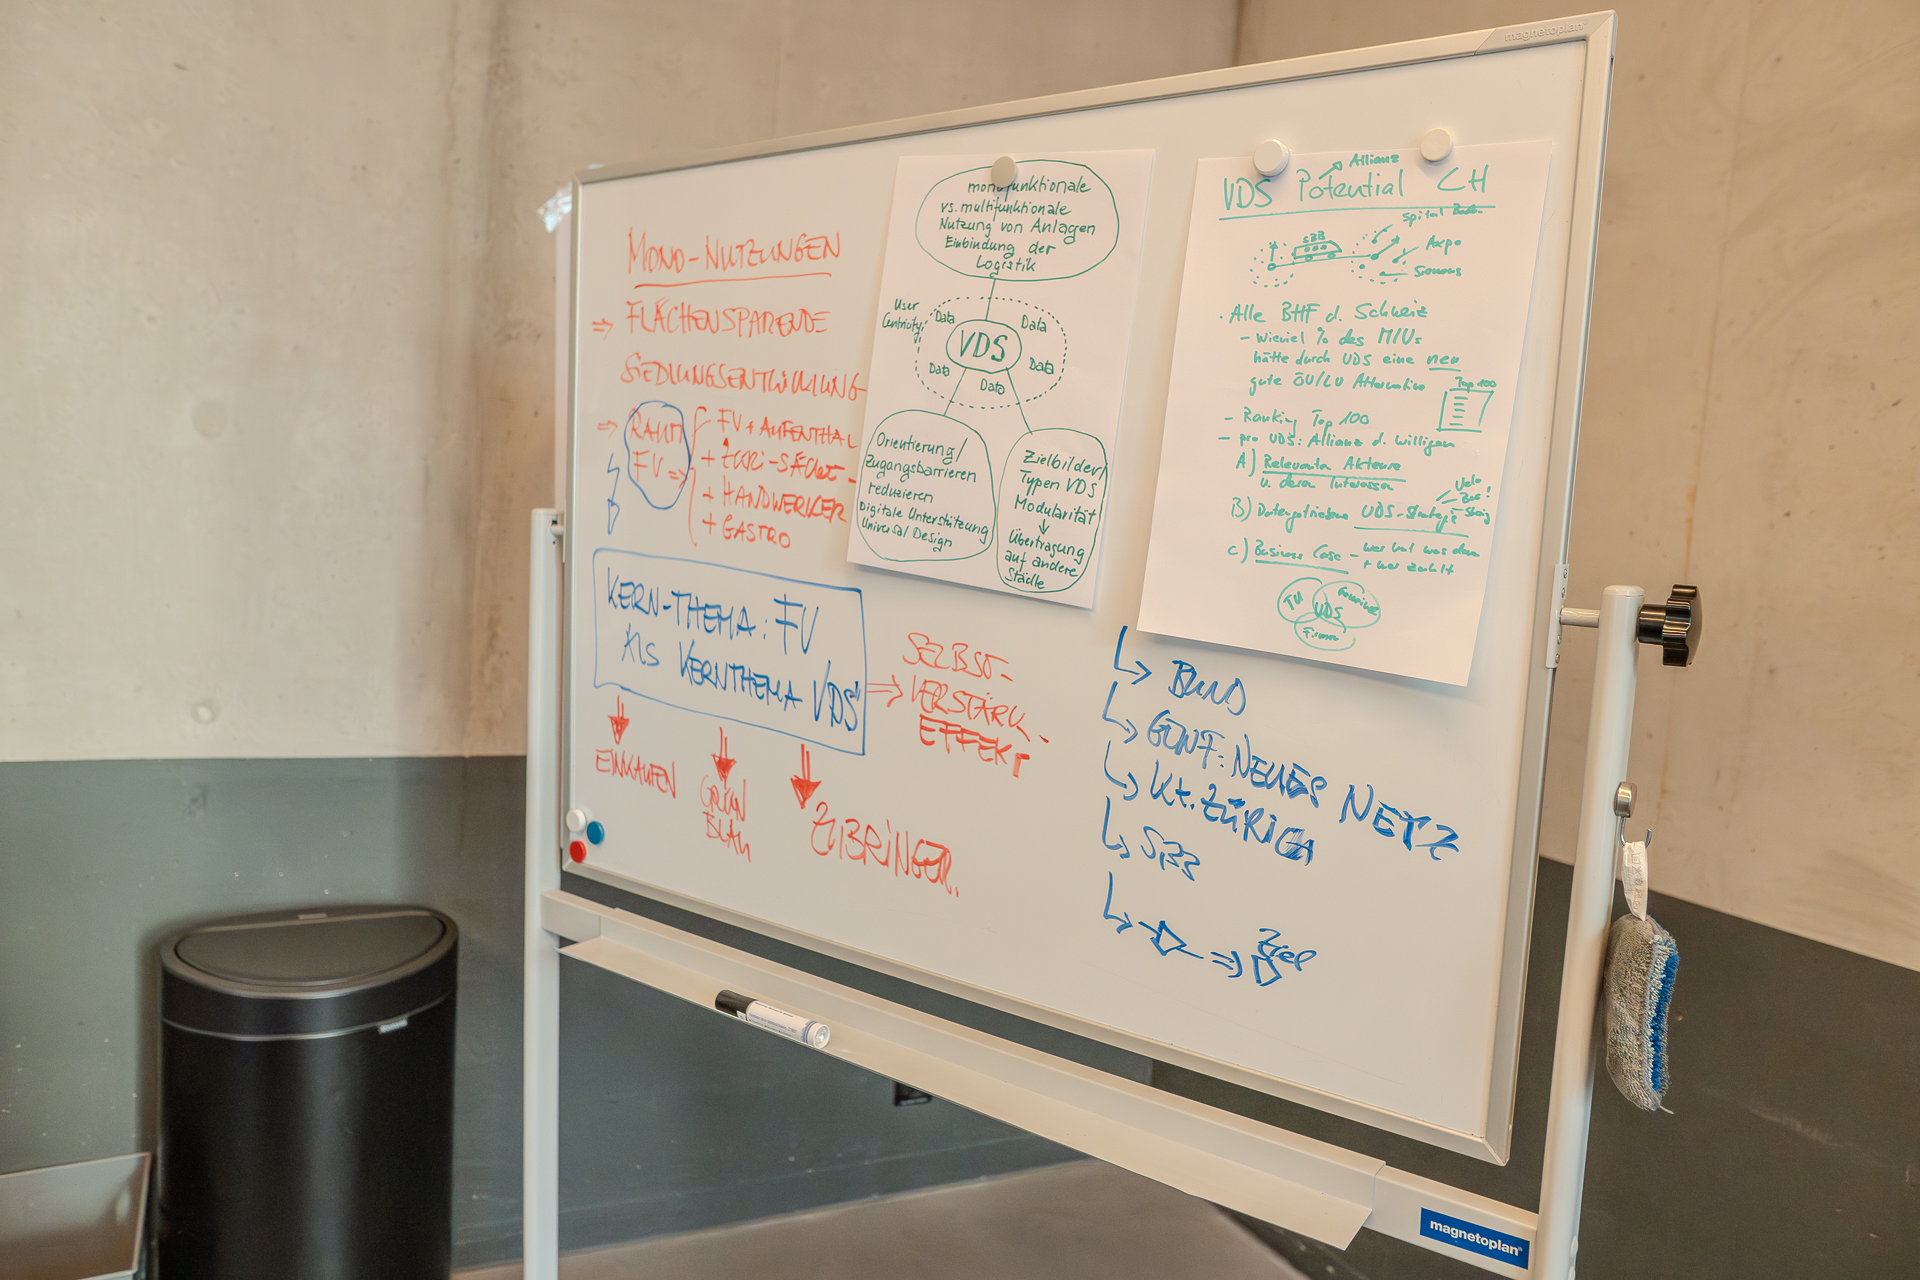 magnetoplan
MONO-NUTZUNGEN
⇒ FLÄCHENSPARENDE
SIEDLUNGSENTWICKLUNG
⇒ FV ⇒
FV + AUFENTHAL
+ HANDWERKER
+ GASTRO
KERN-THEMA: FV
ALS KERNTHEMA VDS"
⇒ SELBST-
VERSTÄRK.
EFFEKT
EINKAUFEN
GRÜN
BLAU
ZUBRINGER.
monofunktionale
vs. multifunktionale
Nutzung von Anlagen
Einbindung der
Logistik
User
Centricity
Data
Data
VDS
Data
Data
Data
Orientierung/
Zugangsbarrieren
reduzieren
Digitale Unterstützung
Universal Design
Zielbilder/
Typen VDS
Modularität
↓
Übertragung
auf andere
Städte
Allianz
VDS Potential CH
Spital
SBB
Axpo
Siemens
· Alle BHF d. Schweiz
- Wieviel % des MIVs
hätte durch VDS eine neu
gute ÖV/LV Alternative
Top 100
- Ranking Top 100
- pro VDS: Allianz d. Willigen
A) Relevante Akteure
u. deren Interessen
Velo
Bus!
B) Datengetriebene VDS-Strategie
C) Business Case - wer hat was davon
+ wer zahlt
TU
VDS
Gemeinde
Firmen
BUND
GENF: NEUES NETZ
Kt. ZÜRICH
SBB
⇒ Ziel
magnetoplan